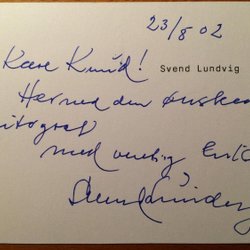 23/8 02
Kære Knud!
Svend Lundvig
Hermed den ønskede
autograf
med venlig hilsen
Svend Lundvig